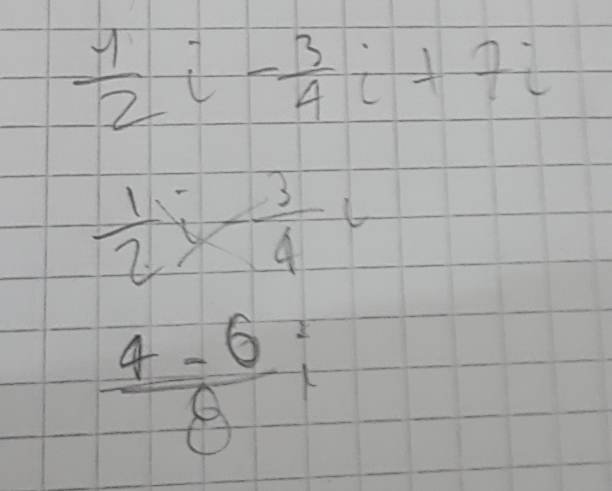 1/2 i - 3/4 i + 7i
1/2 i - 3/4 i
4 - 6/8 i